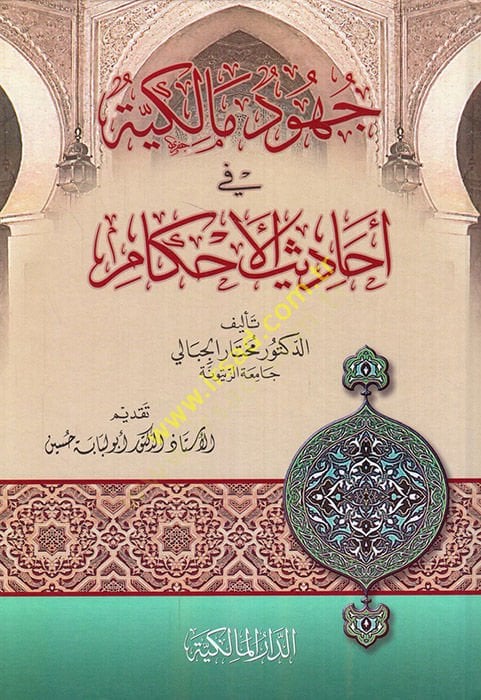 جُهُودٌ مَالِكِيَّةٌ
فِي
أَحَادِيثِ الأَحْكَامِ
تَأليف
الدّكتُور مُختَار الجبَالي
جَامِعَة الزّيتُونَة
تَقديم
الأستاذ الدّكتور أبولبابة حُسين
الدَّارُ المَالِكِيَّة